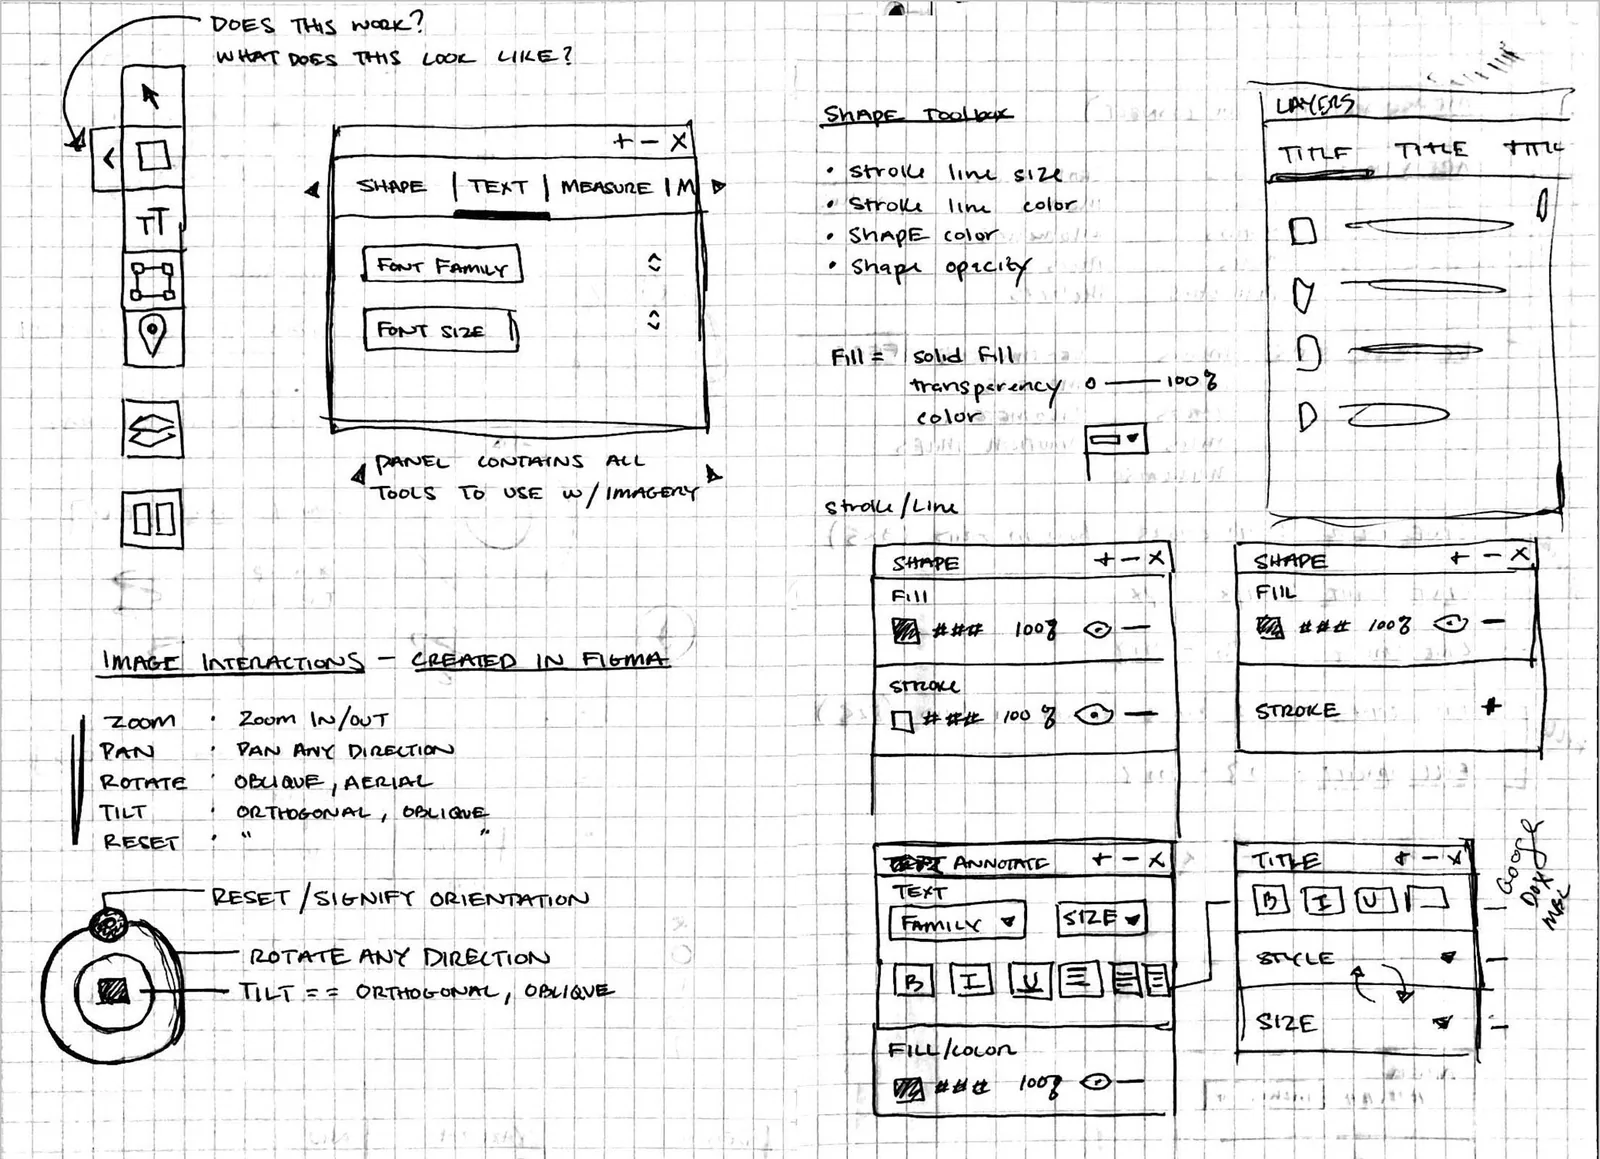 DOES THIS WORK?
WHAT DOES THIS LOOK LIKE?
<
TT
+ - X
SHAPE | TEXT | MEASURE | M
FONT FAMILY
FONT SIZE
PANEL CONTAINS ALL
TOOLS TO USE W/IMAGERY
IMAGE INTERACTIONS - CREATED IN FIGMA
ZOOM : ZOOM IN/OUT
PAN : PAN ANY DIRECTION
ROTATE : OBLIQUE, AERIAL
TILT : ORTHOGONAL, OBLIQUE
RESET : " "
RESET/SIGNIFY ORIENTATION
ROTATE ANY DIRECTION
TILT == ORTHOGONAL, OBLIQUE
SHAPE Toolbox
• Stroke line size
• Stroke line color
• SHAPE color
• Shape opacity
Fill = solid Fill
transparency 0 — 100%
color
Stroke/Line
LAYERS
TITLE TITLE TITLE
SHAPE + - X
Fill
### 100%
STROKE
### 100%
SHAPE + - X
FILL
### 100%
STROKE +
ANNOTATE + - X
TEXT
FAMILY SIZE
B I U
FILL/COLOR
### 100%
TITLE + - X
B I U
STYLE
SIZE
Google